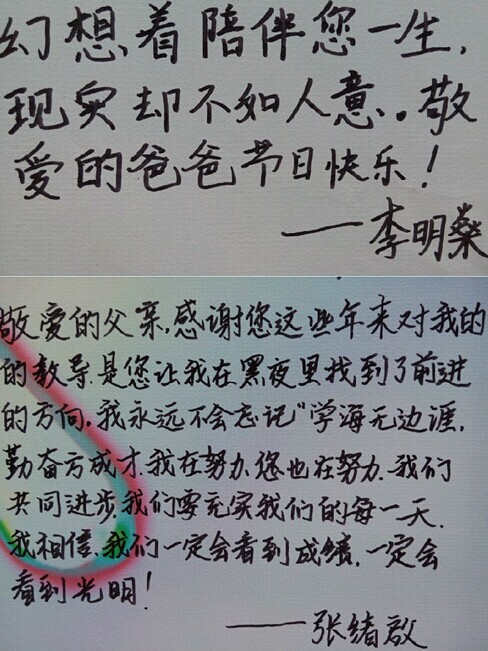 幻想着陪伴您一生，
现实却不如人意。敬
爱的爸爸节日快乐！
——李明燊
敬爱的父亲，感谢您这些年来对我的
的教导.是您让我在黑夜里找到了前进
的方向。我永远不会忘记“学海无边涯，
勤奋方成才.我在努力.您也在努力.我们
共同进步.我们要充实我们的每一天.
我相信.我们一定会看到成绩.一定会
看到光明！
——张绪啟